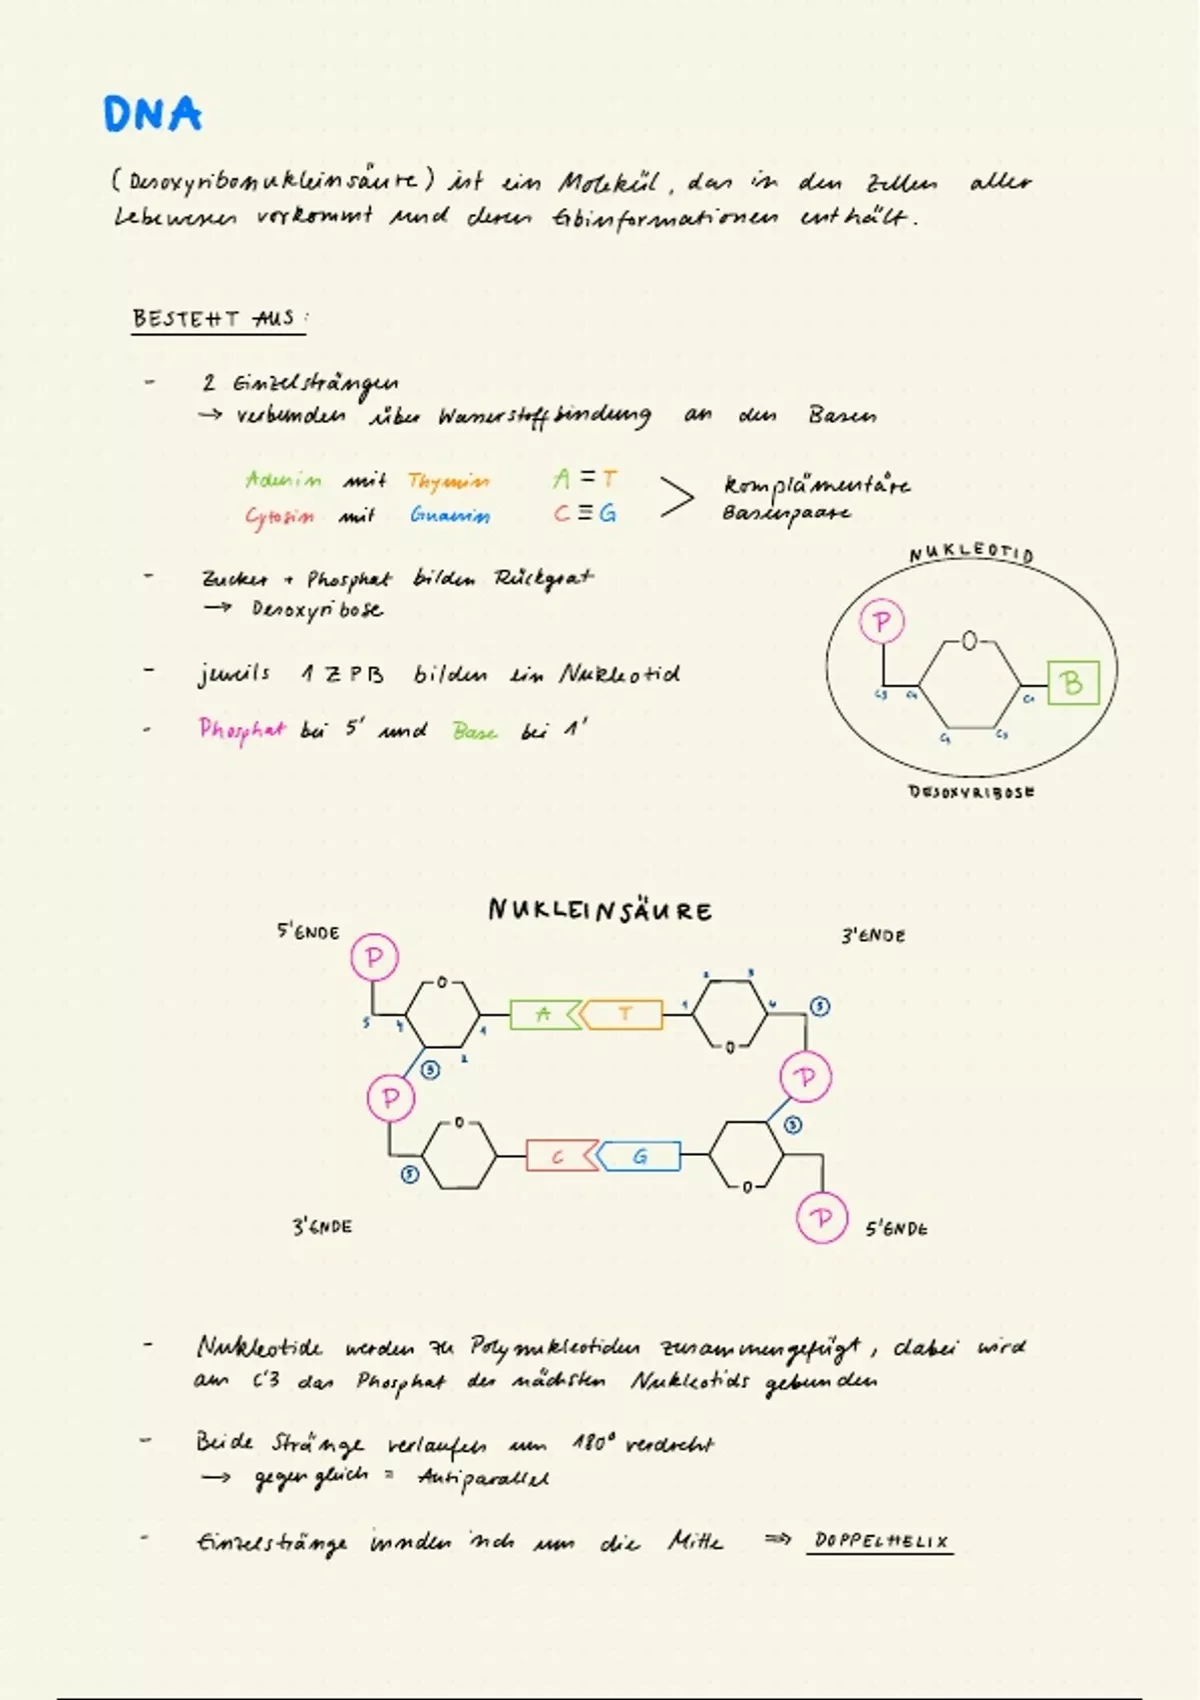 DNA
(Desoxyribonukleinsäure) ist ein Molekül, das in den Zellen aller
Lebewesen vorkommt und deren Erbinformationen enthält.
BESTEHT AUS:
- 2 Einzelsträngen
→ verbunden über Wasserstoffbindung an den Basen
Adenin mit Thymin A = T
Cytosin mit Guanin C ≡ G
> komplämentäre
Basenpaare
- Zucker + Phosphat bilden Rückgrat
→ Desoxyribose
- jeweils 1 Z P B bilden ein Nukleotid
- Phosphat bei 5' und Base bei 1'
NUKLEOTID
P
O
B
C5 C4 C1
DESOXYRIBOSE
NUKLEINSÄURE
5'ENDE 3'ENDE
P
O 2 3
A T
5 4 1 1 4 5
O
3 2
P P
3
O
C G
5
O
P
3'ENDE 5'ENDE
- Nukleotide werden zu Polynukleotiden zusammengefügt, dabei wird
am C'3 das Phosphat des nächsten Nukleotids gebunden
- Beide Stränge verlaufen um 180° verdreht
→ gegengleich = Antiparallel
- Einzelstränge winden sich um die Mitte ⇒ DOPPELHELIX